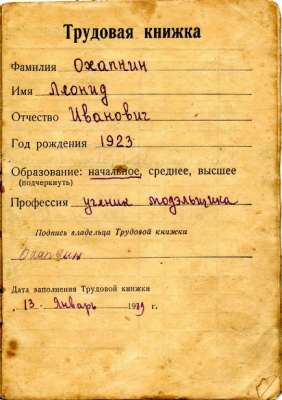 Трудовая книжка
Фамилия Охапкин
Имя Леонид
Отчество Иванович
Год рождения 1923
Образование: начальное, среднее, высшее
(подчеркнуть)
Профессия ученик модэльщика
Подпись владельца Трудовой книжки
Охапкин
Дата заполнения Трудовой книжки
13 Январь 1939 г.